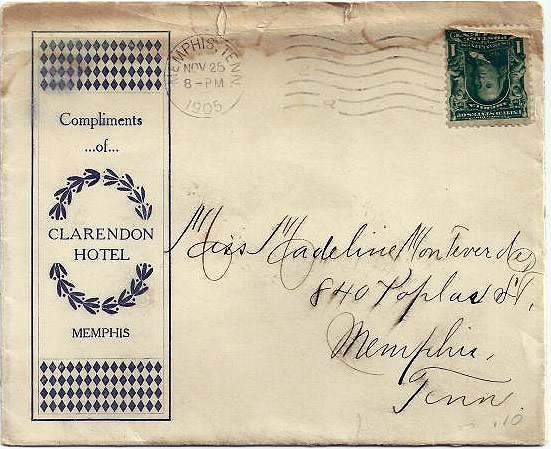 MEMPHIS, TENN.
NOV 25
8-PM
1905
R
Compliments
...of...
CLARENDON
HOTEL
MEMPHIS
Miss Madeline Monteverde,
840 Poplar St,
Memphis,
Tenn.
.10
1
1